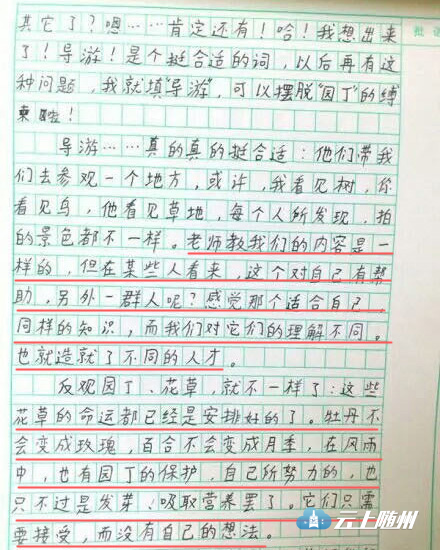 其它了？嗯……肯定还有！哈！我想出来
批语
了！导游！是个挺合适的词，以后再有这
种问题，我就填"导游"，可以摆脱"园丁"的缚
束啦！
导游……真的真的挺合适：他们带我
们去参观一个地方，或许，我看见树，你
看见鸟，他看见草地，每个人所发现，拍
的景色都不一样。老师教我们的内容是一
样的，但在某些人看来，这个对自己有帮
助，另外一群人呢？感觉那个适合自己，
同样的知识，而我们对它们的理解不同。
也就造就了不同的人才。
反观园丁、花草，就不一样了：这些
花草的命运都已经是安排好的了。牡丹不
会变成玫瑰，百合不会变成月季，在风雨
中，也有园丁的保护，自己所努力的，也
只不过是发芽、吸取营养罢了。它们只需
要接受，而没有自己的想法。
云上随州